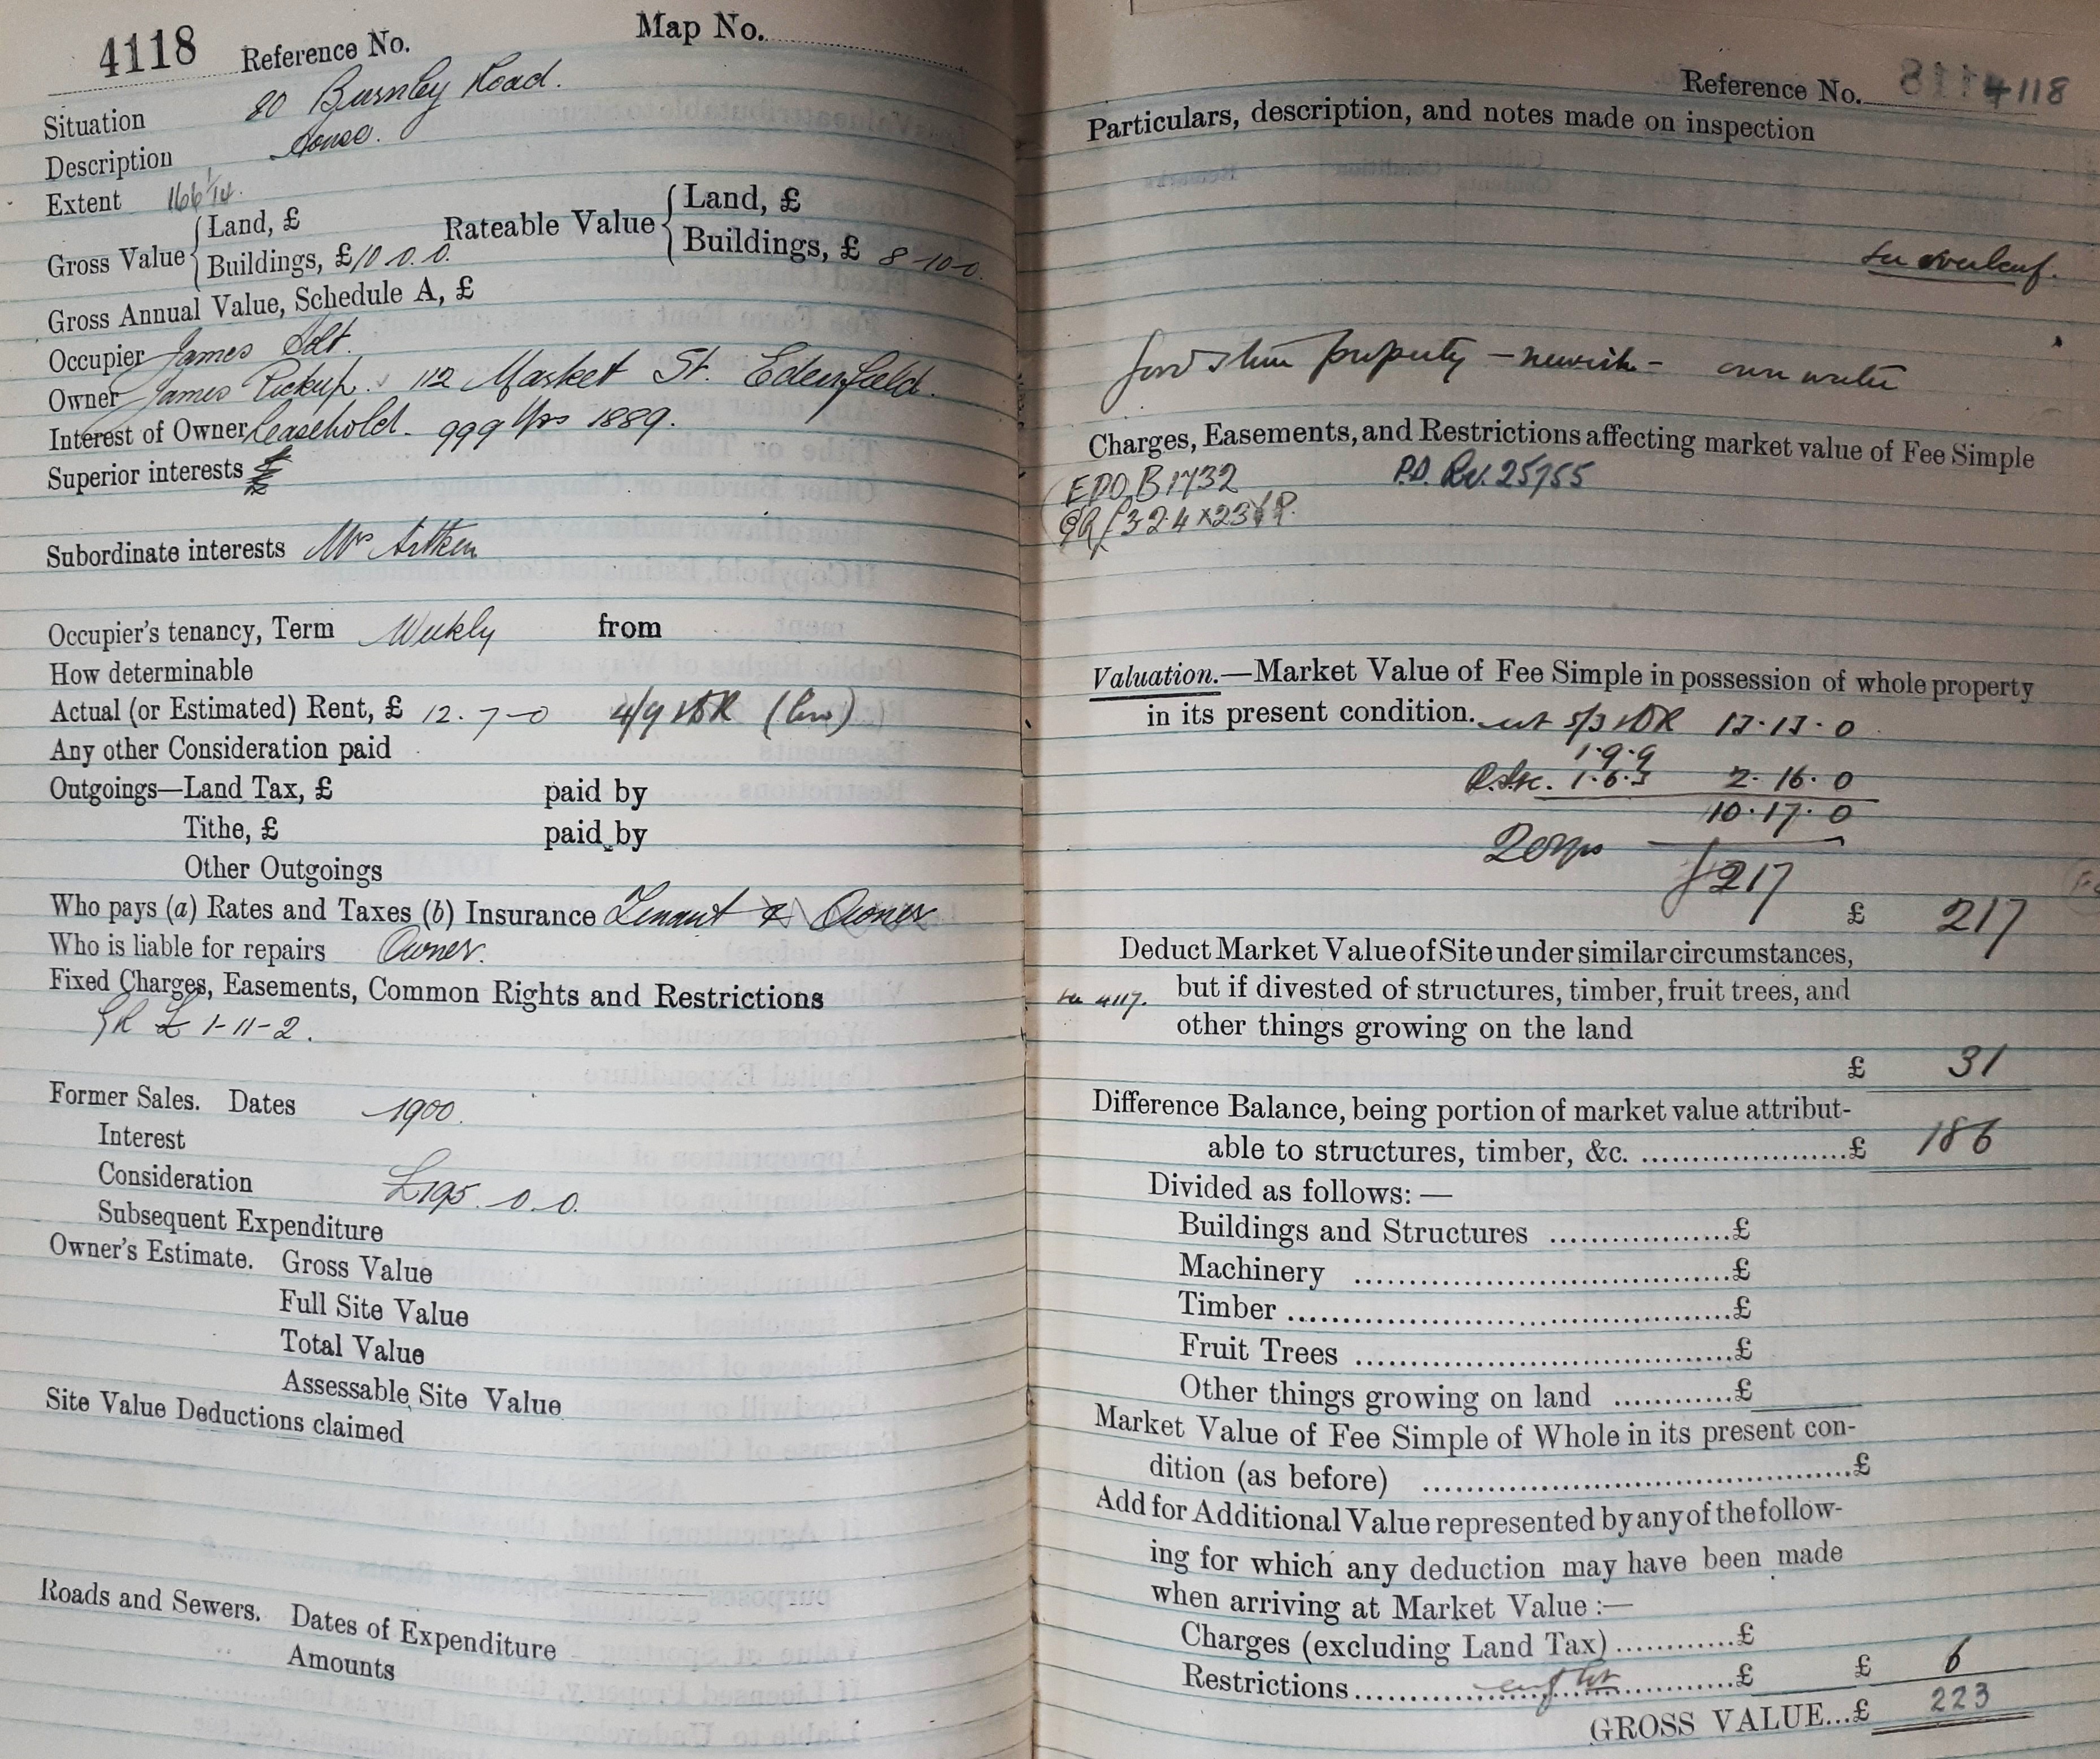 4118 Reference No. Map No.
Situation 20 Burnley Road.
Description House.
Extent 166 1/4.
Gross Value { Land, £
Buildings, £ 10.0.0.
Rateable Value { Land, £
Buildings, £ 8-10-0.
Gross Annual Value, Schedule A, £
Occupier James Holt.
Owner James Pickup. 112 Market St. Edenfield.
Interest of Owner Leasehold. 999 Yrs 1889.
Superior interests
Subordinate interests Mr Aitken
Occupier's tenancy, Term Weekly from
How determinable
Actual (or Estimated) Rent, £ 12.7-0 4/9 (low)
Any other Consideration paid
Outgoings—Land Tax, £ paid by
Tithe, £ paid by
Other Outgoings
Who pays (a) Rates and Taxes (b) Insurance Tenant & Owner
Who is liable for repairs Owner.
Fixed Charges, Easements, Common Rights and Restrictions
GR £1-11-2.
Former Sales. Dates 1900.
Interest
Consideration £195.0.0.
Subsequent Expenditure
Owner's Estimate. Gross Value
Full Site Value
Total Value
Assessable Site Value
Site Value Deductions claimed
Roads and Sewers. Dates of Expenditure
Amounts
Reference No. 4118
Particulars, description, and notes made on inspection
See overleaf.
Good stone property — newish — own water
Charges, Easements, and Restrictions affecting market value of Fee Simple
EDO B1732 P.D. Rev. 25755
GR £3.2.4 x 23 YP.
Valuation.—Market Value of Fee Simple in possession of whole property
in its present condition. 5/3 13.13.0
1.9.9
1.6.3 2.16.0
10.17.0
20 yrs
£217
£ 217
Deduct Market Value of Site under similar circumstances,
see 4117. but if divested of structures, timber, fruit trees, and
other things growing on the land
£ 31
Difference Balance, being portion of market value attribut-
able to structures, timber, &c. ....................£ 186
Divided as follows: —
Buildings and Structures ..................£
Machinery ......................................£
Timber ............................................£
Fruit Trees ......................................£
Other things growing on land ...........£
Market Value of Fee Simple of Whole in its present con-
dition (as before) ...........................................£
Add for Additional Value represented by any of the follow-
ing for which any deduction may have been made
when arriving at Market Value :—
Charges (excluding Land Tax) ............£
Restrictions ......................................£ £ 6
GROSS VALUE...£ 223